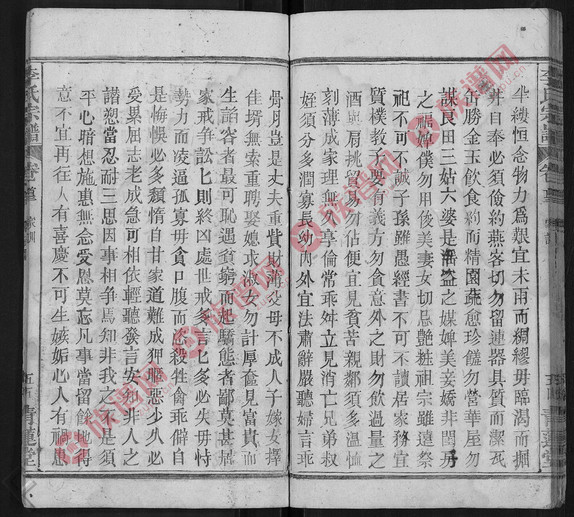 半縷恒念物力爲艱宜未雨而綢繆毋臨渴而掘
井自奉必須儉約燕客切勿留連器具質而潔瓦
缶勝金玉飲食約而精園蔬愈珍饈勿營華屋勿
謀良田三姑六婆是淫盜之媒婢美妾嬌非閨房
之福婢僕勿用俊美妻女切忌艷粧祖宗雖遠祭
祀不可不誠子孫雖愚經書不可不讀居家務宜
質樸教子要有義方勿貪意外之財勿飲過量之
酒與肩挑貿易勿佔便宜見貧苦親鄰須多溫恤
刻薄成家理無久享倫常乖舛立見消亡兄弟叔
姪須分多潤寡長幼內外宜法肅辭嚴聽婦言乖
骨肉豈是丈夫重貲財薄父母不成人子嫁女擇
佳壻無索重聘娶媳求淑女勿計厚奩見富貴而
生諂容者最可恥遇貧窮而起驕態者鄙莫甚居
家戒争訟々則終凶處世戒多言々多必失毋恃
勢力而凌逼孤寡毋貪口腹而恣殺牲禽乖僻自
是悔悞必多頹惰自甘家道難成狎暱惡少久必
受累屈志老成急可相依輕聽發言安知非人之
譖愬當忍耐三思因事相争焉知非我之不是須
平心暗想施惠無念受恩莫忘凡事當留餘地得
意不宜再往人有喜慶不可生嫉妬心人有禍患
李氏宗譜 卷首 家訓 青蓮堂